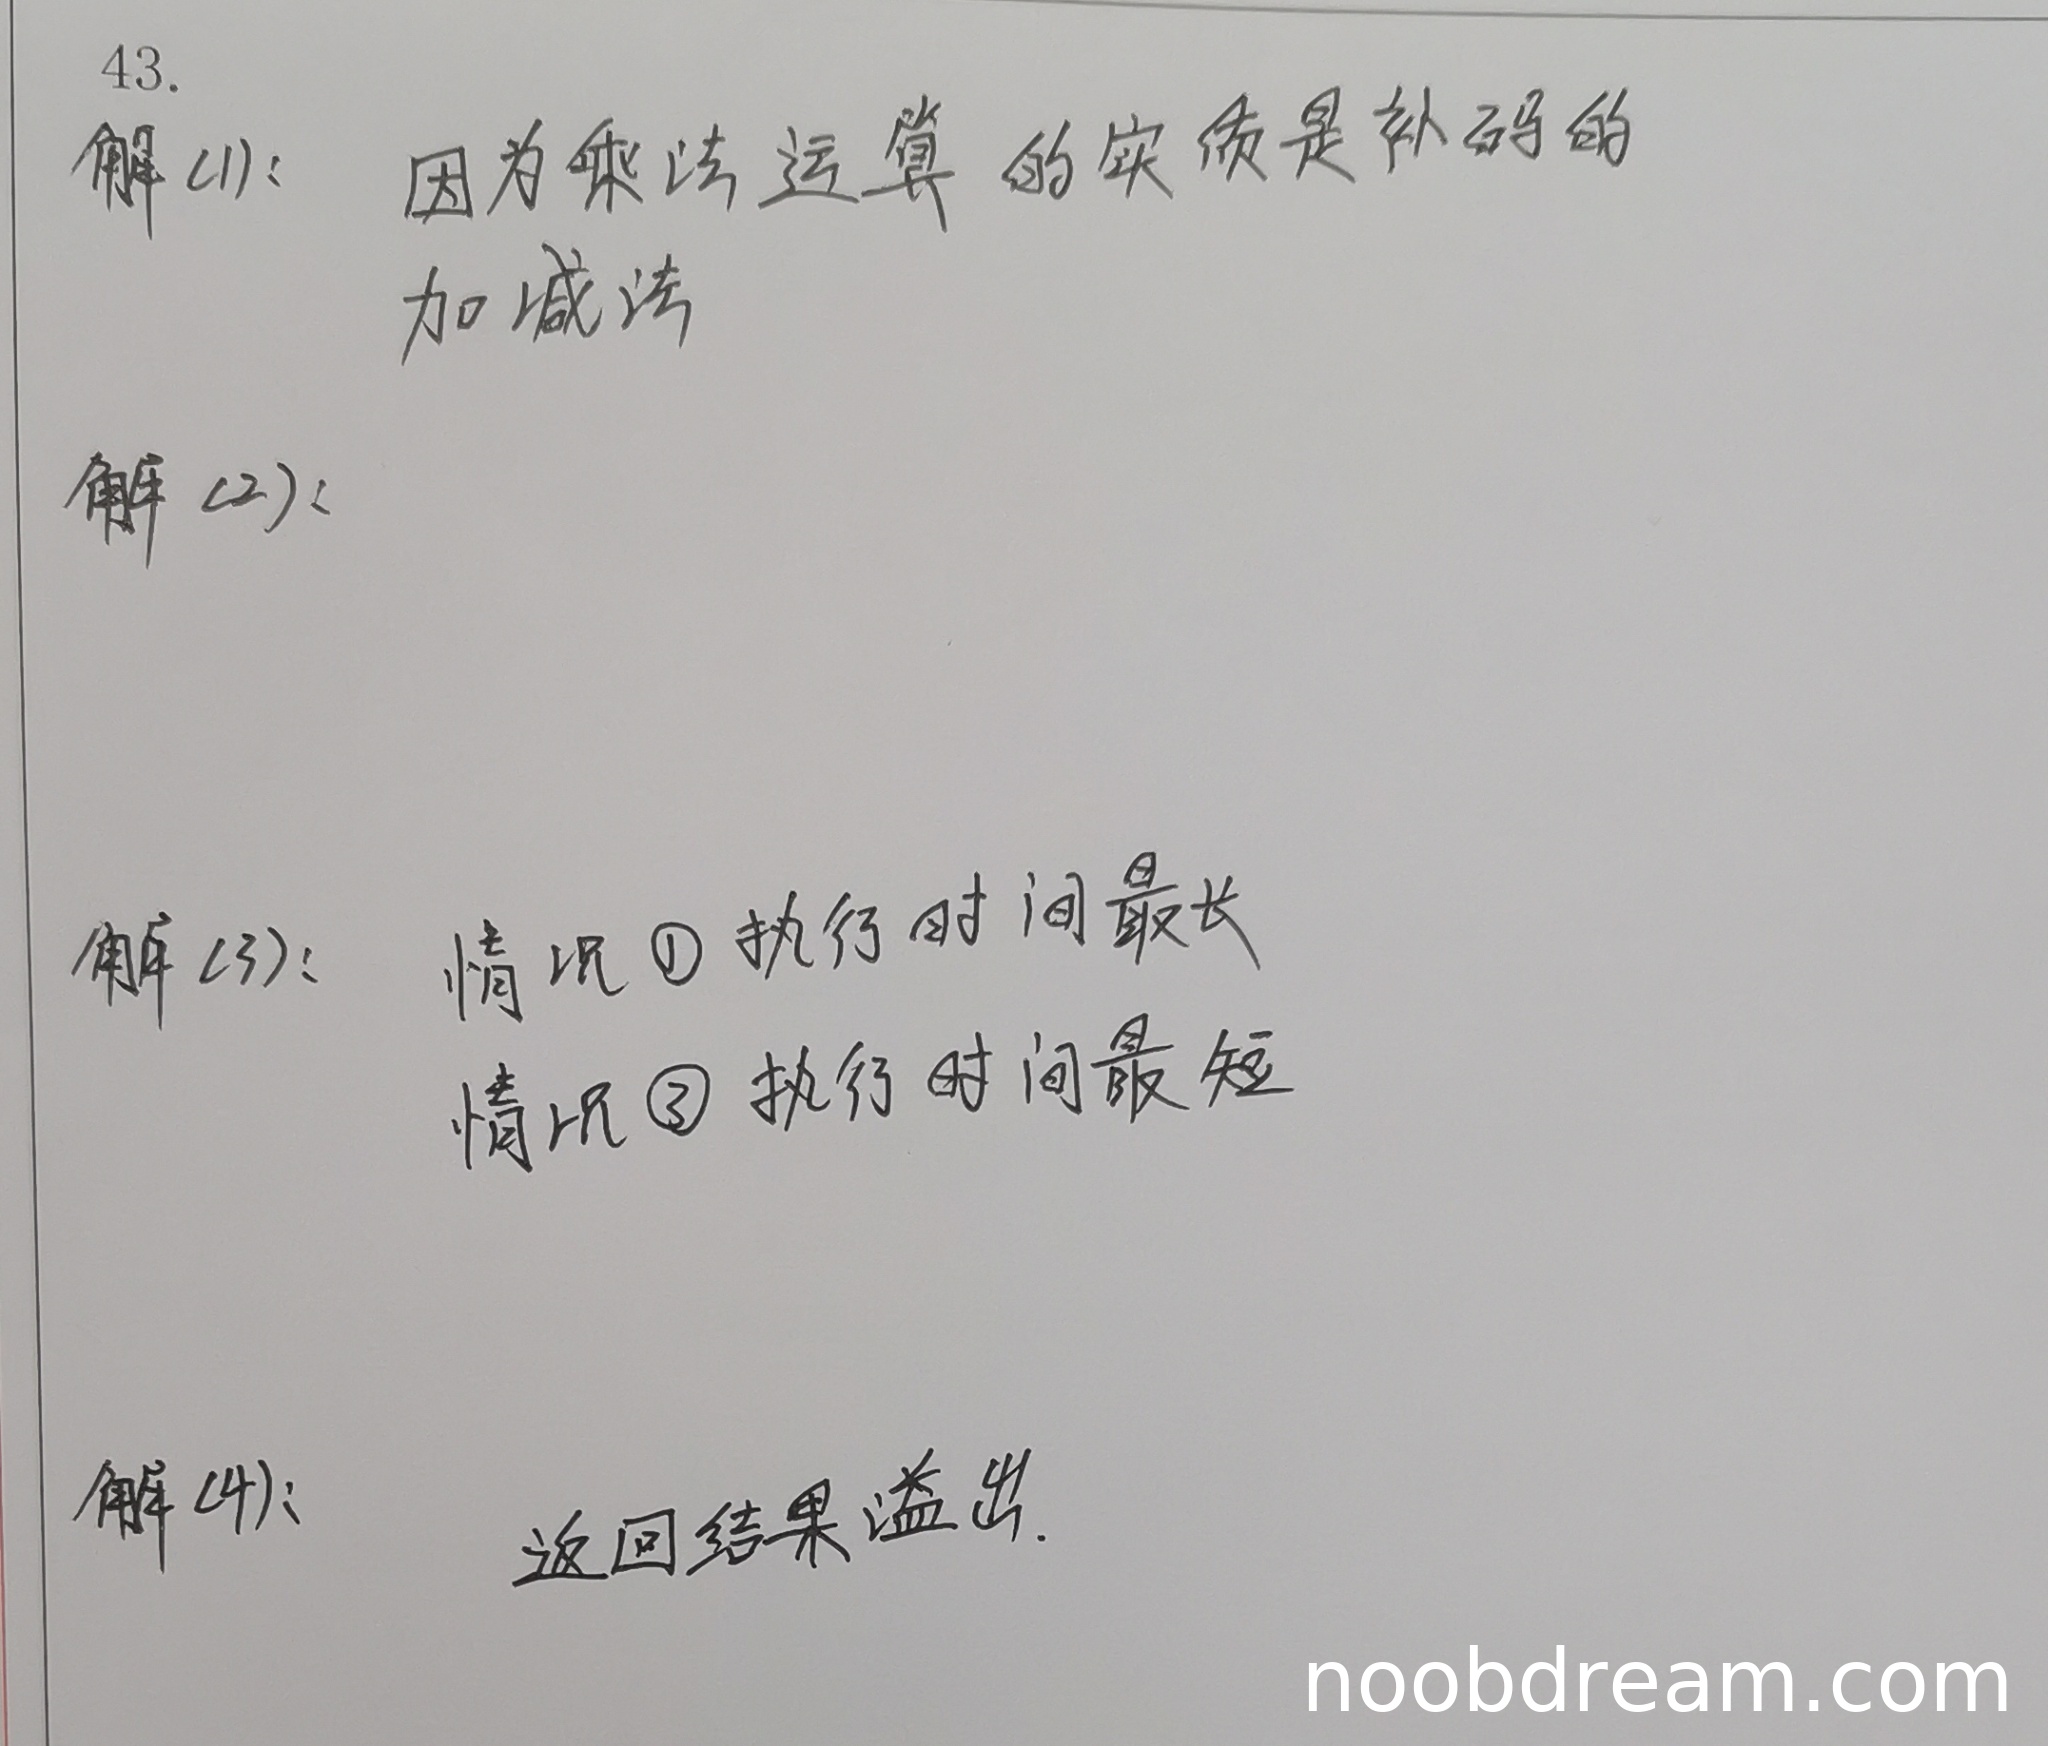 43.
解(1): 因为乘法运算的实质是补码的
加减法
解(2):
解(3): 情况①执行时间最长
情况③执行时间最短
解(4): 返回结果溢出.
noobdream.com